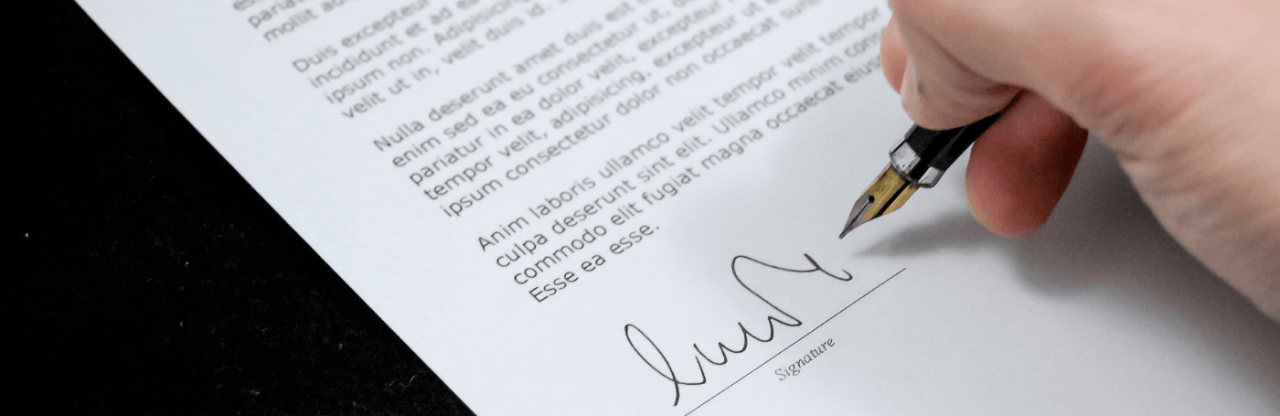 mollit
Duis excepteur
incididunt et ad
ipsum non. Adipisicing
velit ut in, velit duis id.
Nulla deserunt amet duis est
enim sed ea eu consectetur ut,
pariatur in ea dolor velit, excepteur
tempor velit, adipisicing, excepteur ut
ipsum consectetur dolor non occaecat sunt
Anim laboris ullamco velit tempor velit tempor
culpa deserunt sint elit. Ullamco minim
commodo elit fugiat magna occaecat
Esse ea esse.
Signature